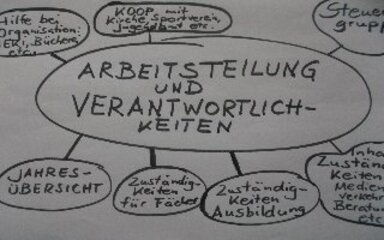 Hilfe bei
Organisation:
Bücherei
etc.
KOOP. mit
Kirche, Sportverein,
Jugendamt etc.
Steuer
grupp
ARBEITSTEILUNG
UND
VERANTWORTLICH-
KEITEN
JAHRES-
ÜBERSICHT
Zuständig-
Keiten
für Fächer
Zuständig-
Keiten
Ausbildung
Inha
Zustän
Keiten
Medie
Verkehr
Beratu
etc